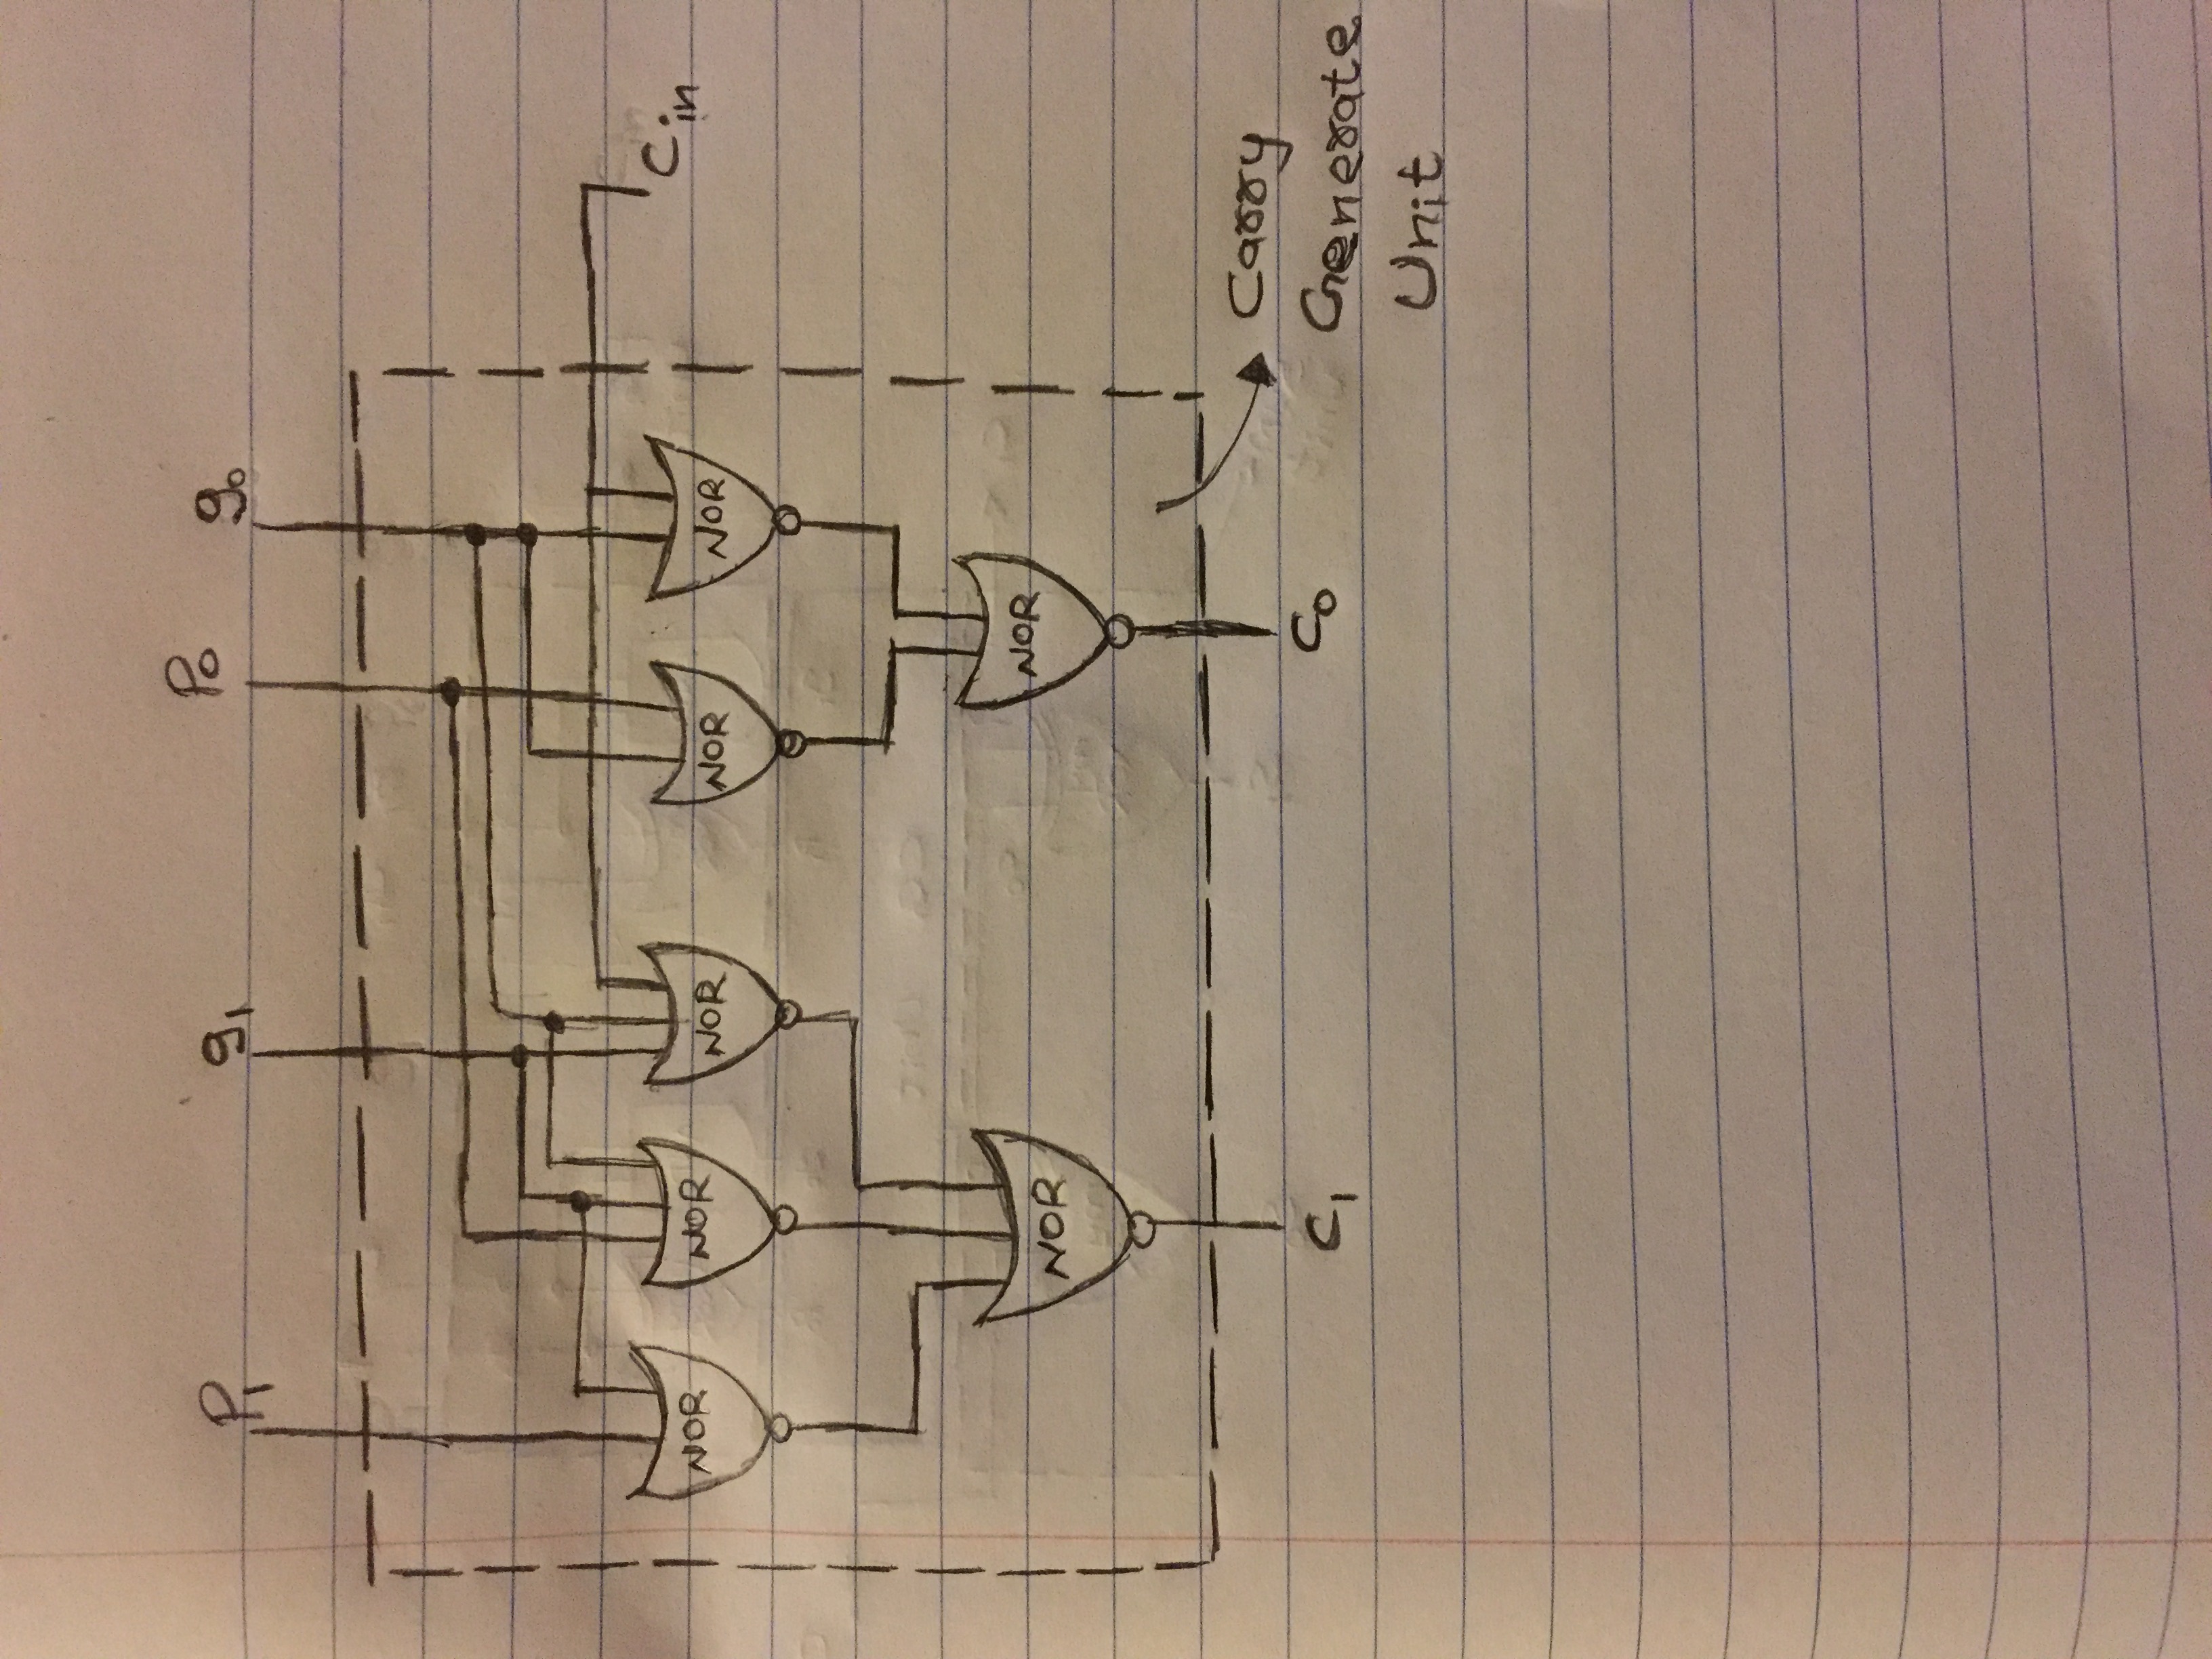 P₁ g₁ P₀ g₀
NOR NOR NOR NOR NOR
Cin
NOR NOR
C₁ C₀
Carry
Generate
Unit